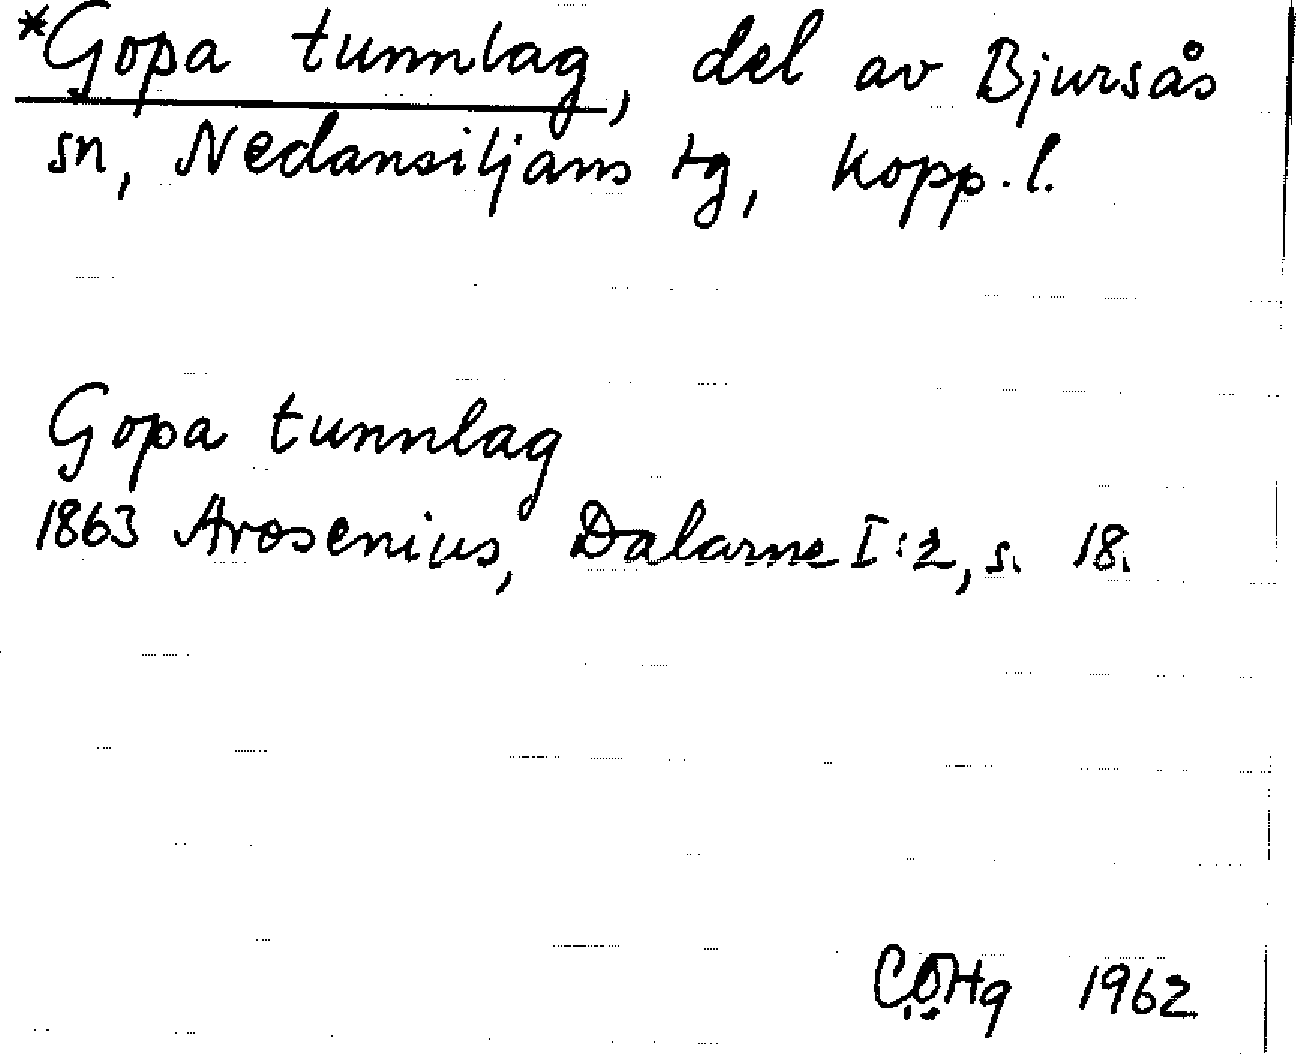 *Gopa tunnlag, del av Bjursås
sn, Nedansiljans tg, Kopp. l.
Gopa tunnlag
1863 Arosenius, Dalarne I:2, s. 18.
CÖHg 1962